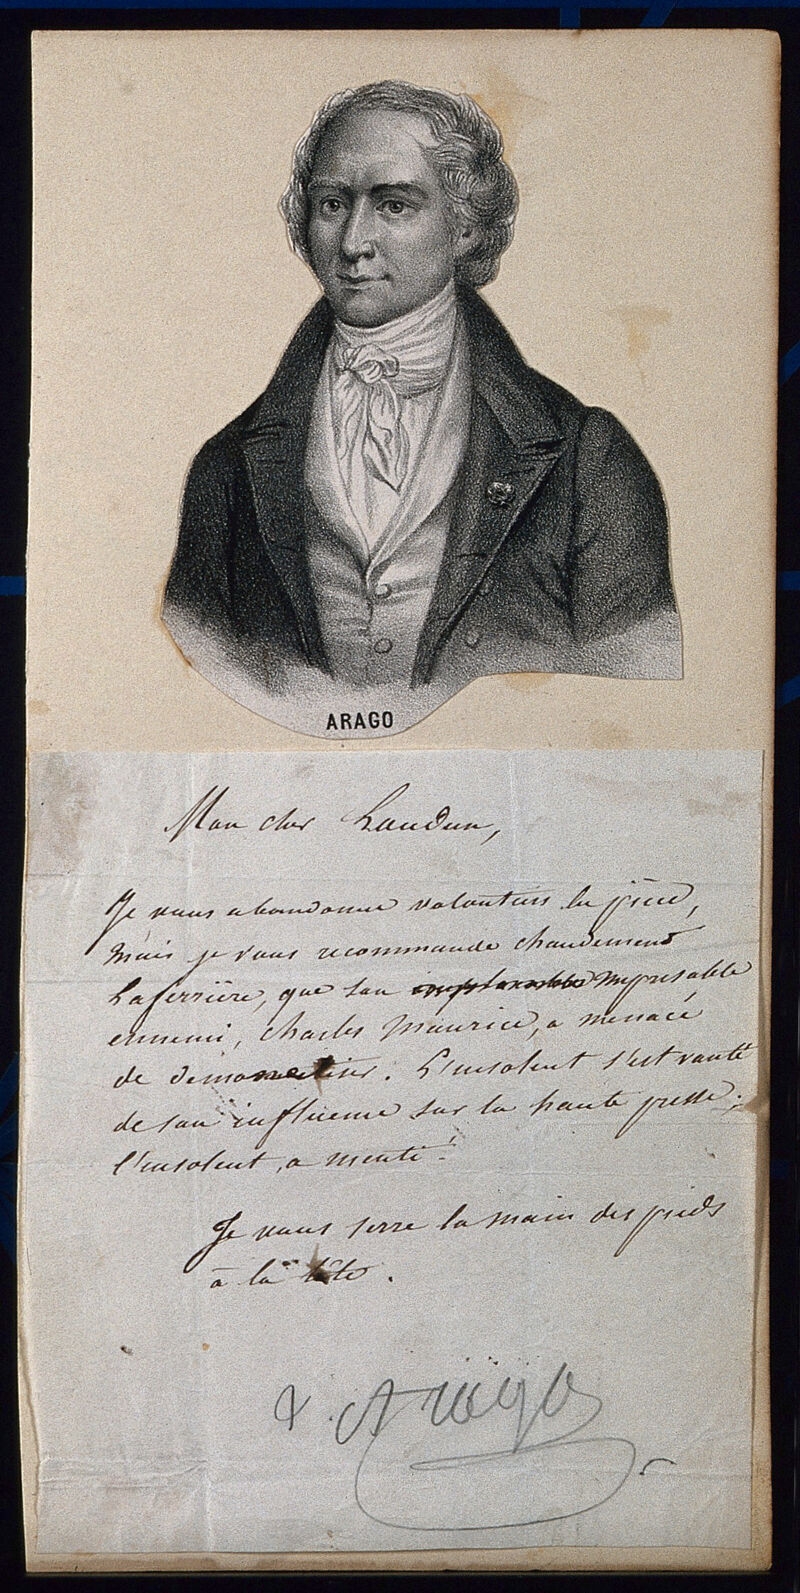 ARAGO
Mon cher Laudun,
Je vous abandonne volontiers la pièce,
mais je vous recommande chaudement
Laferrière, que son implacable méprisable
ennemi, Charles Maurice, a menacé
de démonétiser. L'insolent s'est vanté
de son influence sur la haute presse ;
l'insolent a menti !
Je vous serre la main des pieds
à la tête.
Arago